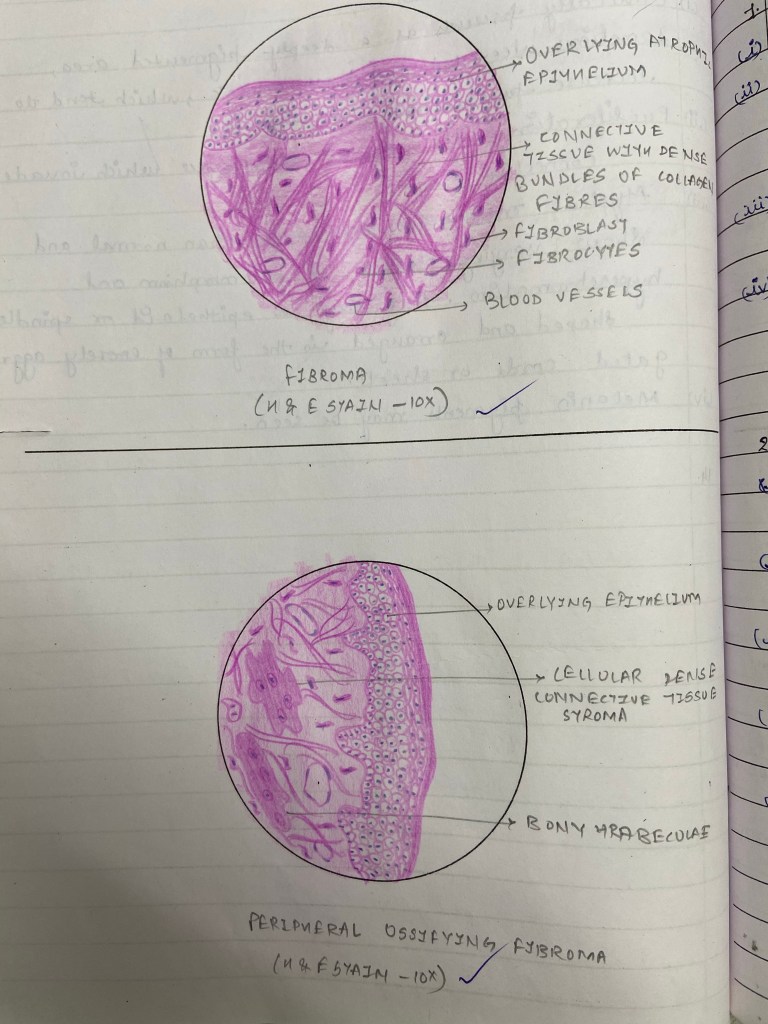 OVERLYING ATROPHIC
EPITHELIUM
CONNECTIVE
TISSUE WITH DENSE
BUNDLES OF COLLAGEN
FIBRES
FIBROBLAST
FIBROCYTES
BLOOD VESSELS
FIBROMA
(H & E STAIN - 10X)
OVERLYING EPITHELIUM
CELLULAR DENSE
CONNECTIVE TISSUE
STROMA
BONY TRABECULAE
PERIPHERAL OSSIFYING FIBROMA
(H & E STAIN - 10X)
1.
(i)
(ii)
(iii)
(iv)
2